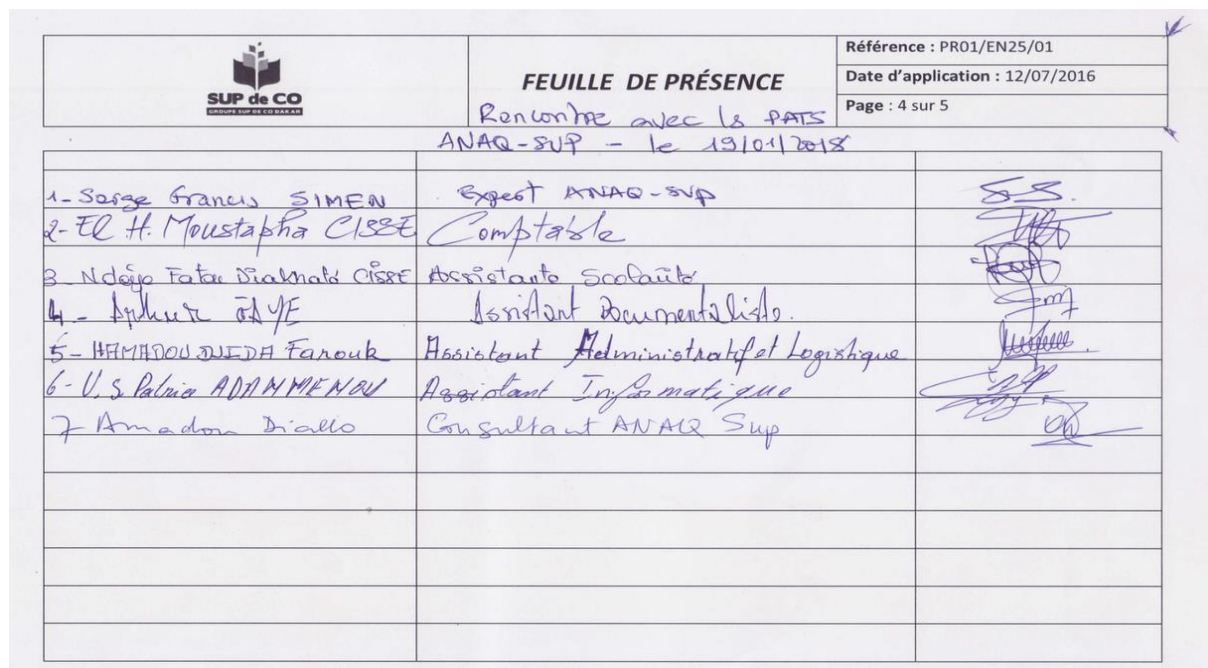 SUP de CO
GROUPE SUP DE CO DAKAR
FEUILLE DE PRÉSENCE
Référence : PR01/EN25/01
Date d'application : 12/07/2016
Page : 4 sur 5
Rencontre avec ls PATS
ANAQ-SUP - le 19/01/2018
1- Serge Francis SIMEN Expert ANAQ-SUP S.S.
2- El H. Moustapha CISSE Comptable
3- Fatou CISSE Assistante Scolarité
4- Arthur Assistant Documentaliste.
5- HAMADOU DJIDA Farouk Assistant Administratif et Logistique
6- U.S. Patrice ADANMENOU Assistant Informatique
7 Amadou Diallo Consultant ANAQ Sup